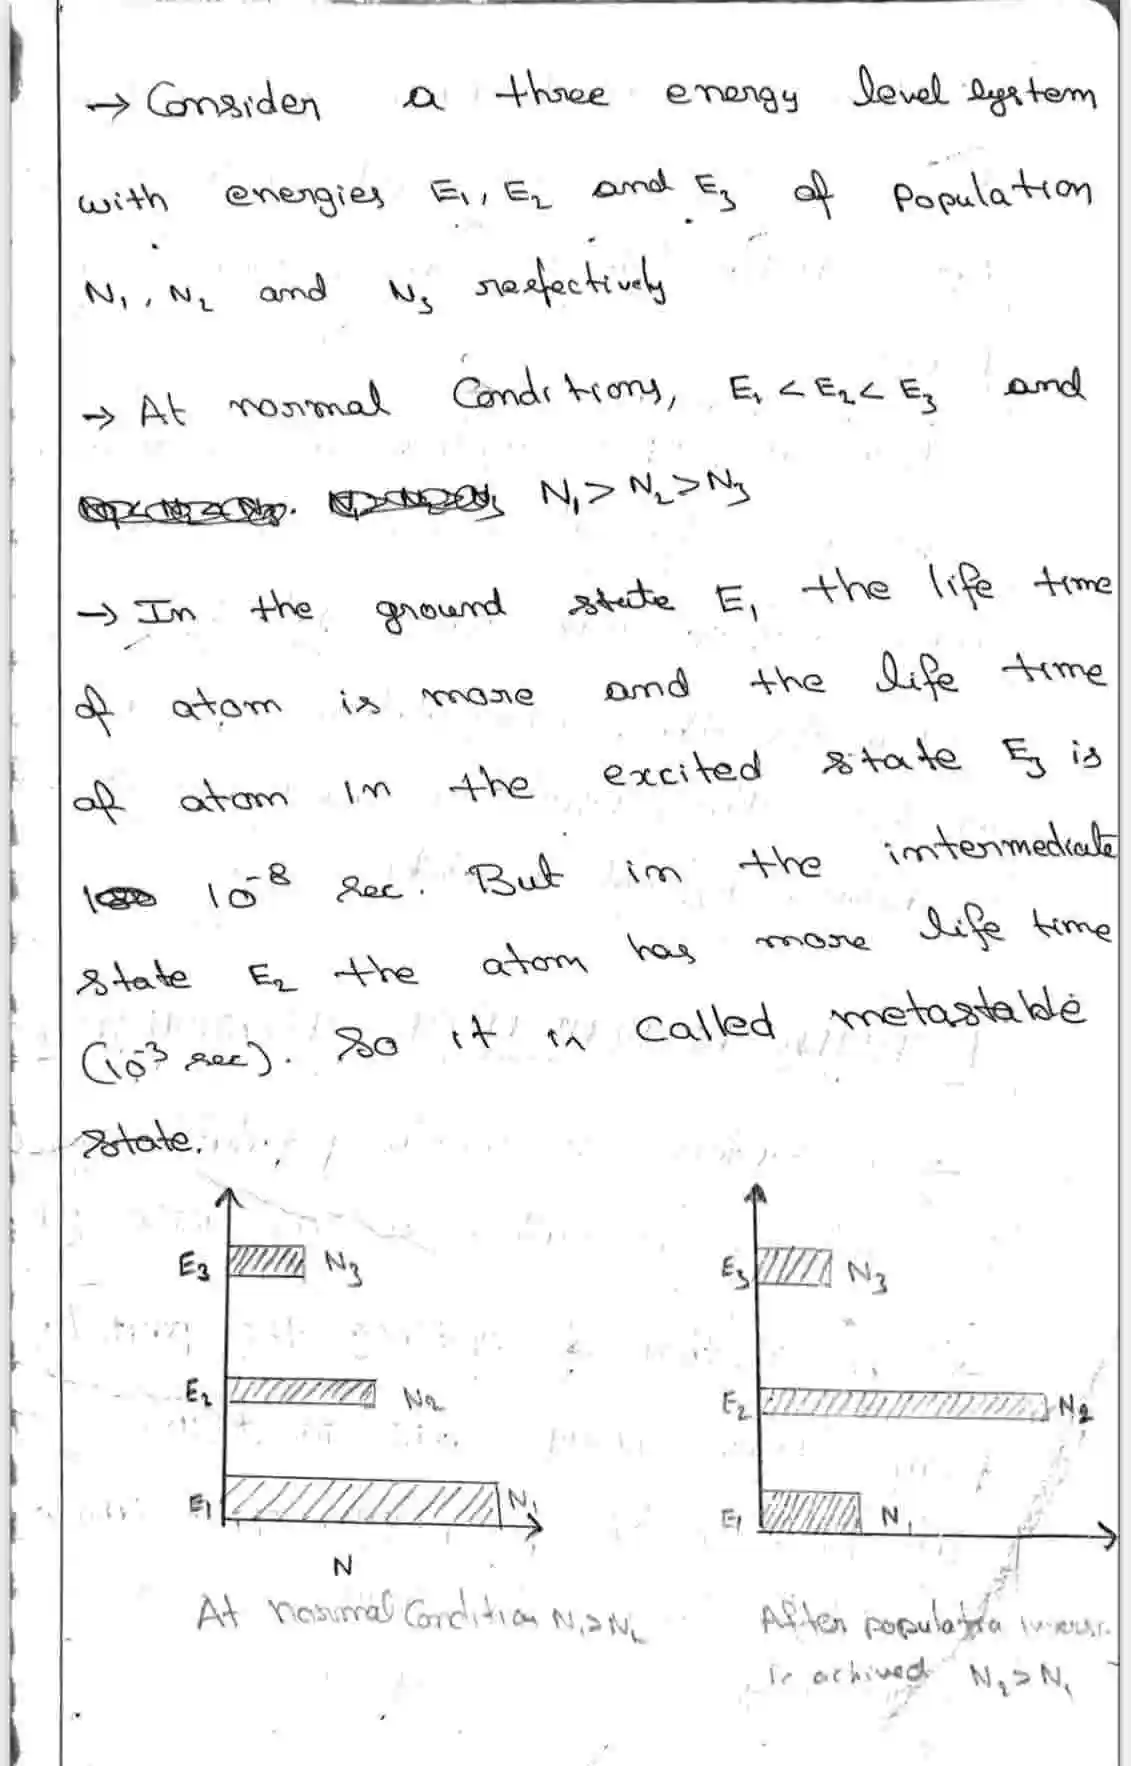 → Consider a three energy level system
with energies E₁, E₂ and E₃ of Population
N₁, N₂ and N₃ respectively
→ At normal Conditions, E₁ < E₂ < E₃ and
N₁ > N₂ > N₃
→ In the ground state E₁ the life time
of atom is more and the life time
of atom in the excited state E₃ is
10⁻⁸ sec. But in the intermediate
state E₂ the atom has more life time
(10⁻³ sec). So it is called metastable
state.
E₃ N₃
E₂ N₂
E₁ N₁
N
At normal Condition N₁>N₂
E₃ N₃
E₂ N₂
E₁ N₁
After population
is achived N₂>N₁